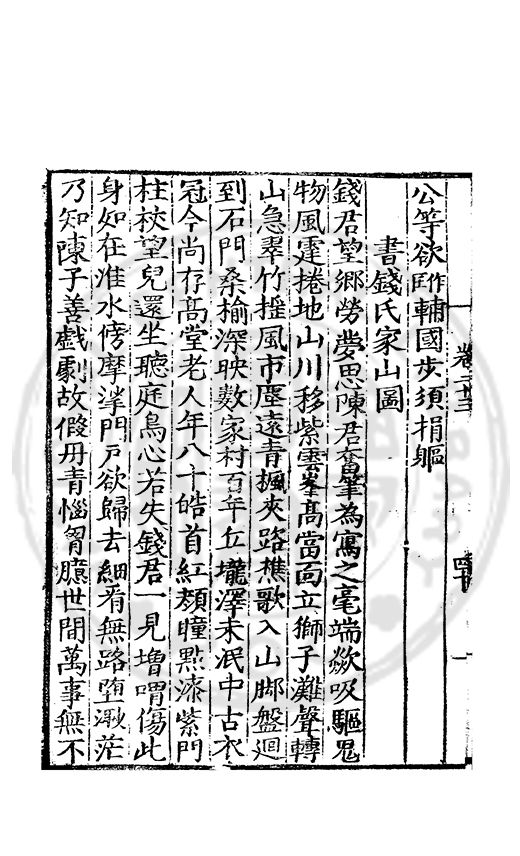 公等欲作輔國步須捐軀
書錢氏家山圖
錢君望鄉勞夢思陳君奮筆為寫之毫端歘吸驅鬼
物風霆捲地山川移紫雲峯高當面立獅子灘聲轉
山急翠竹搖風市廛遠青楓夾路樵歌入山脚盤迴
到石門桑榆深映數家村百年丘壠澤未泯中古衣
冠今尚存髙堂老人年八十皓首紅顏瞳點漆紫門
柱杖望兒還坐聽庭烏心若失錢君一見增喟傷此
身如在淮水傍摩挲門戶欲歸去細看無路堕渺茫
乃知陳子善戲劇故假丹青惱胷臆世間萬事無不
卷二十三